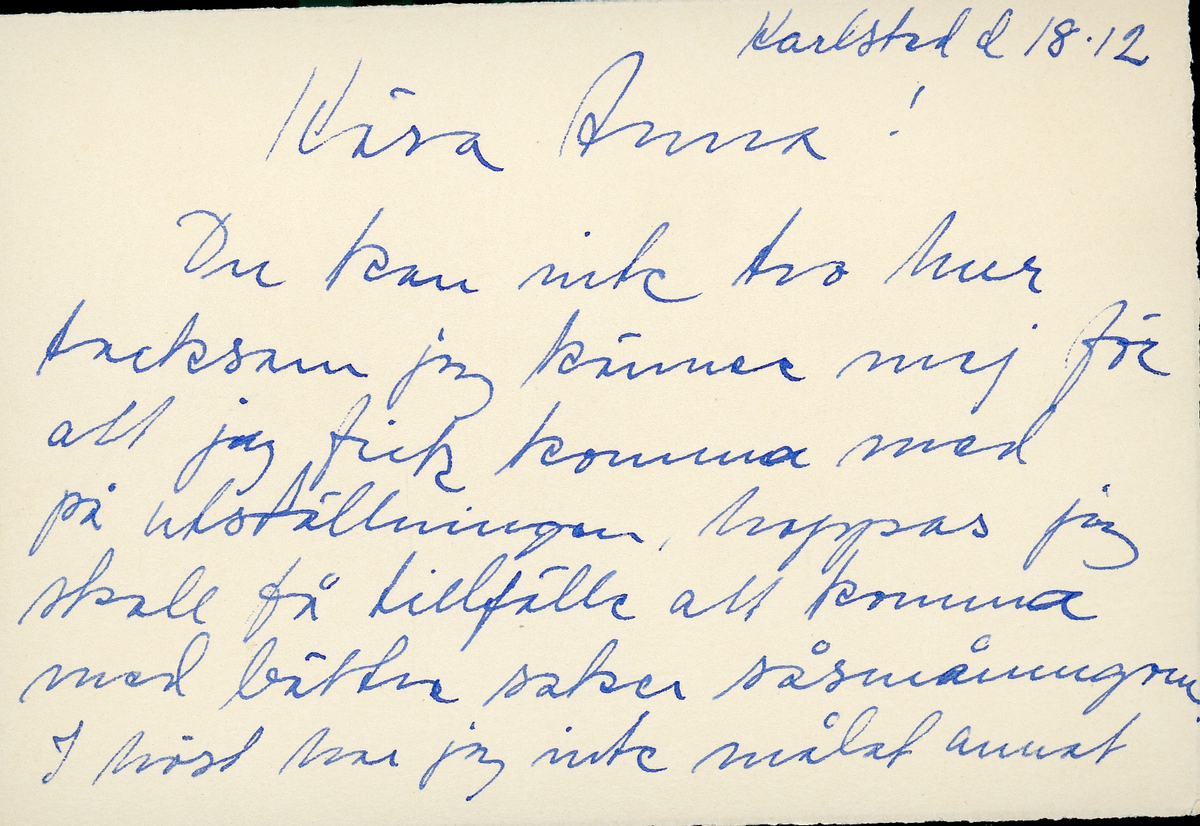 Karlstad d 18.12
Kära Anna!
Du kan inte tro hur
tacksam jag känner mej för
att jag fick komma med
på utställningen, hoppas jag
skall få tillfälle att komma
med bättre saker såsmåningom.
I höst har jag inte målat annat